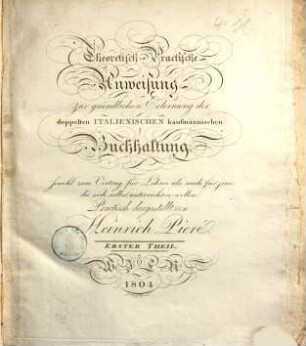 Theoretisch Practische
Anweisung
zur gründlichen Erlernung der
doppelten ITALIENISCHEN kaufmännischen
Buchhaltung
sowohl zum Vortrag für Lehrer als auch für jene
die sich selbst unterrichten wollen.
Practisch dargestellt von
Heinrich Pieré
ERSTER THEIL.
WIEN
1804